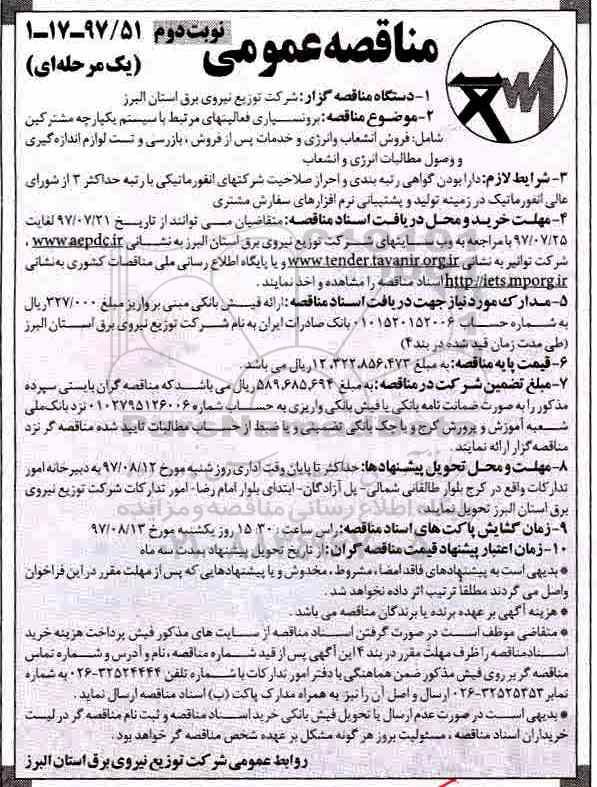 مناقصه عمومی
نوبت دوم
۹۷/۵۱-۱۷-۱
(یک مرحله‌ای)
۱- دستگاه مناقصه گزار: شرکت توزیع نیروی برق استان البرز
۲- موضوع مناقصه: برونسپاری فعالیتهای مرتبط با سیستم یکپارچه مشترکین
شامل: فروش انشعاب وانرژی و خدمات پس از فروش ، بازرسی و تست لوازم اندازه گیری
و وصول مطالبات انرژی و انشعاب
۳- شرایط لازم: دارا بودن گواهی رتبه بندی و احراز صلاحیت شرکتهای انفورماتیکی با رتبه حداکثر ۳ از شورای
عالی انفورماتیک در زمینه تولید و پشتیبانی نرم افزارهای سفارش مشتری
۴- مهلت خرید و محل دریافت اسناد مناقصه: متقاضیان می توانند از تاریخ ۹۷/۰۷/۲۱ لغایت
۹۷/۰۷/۲۵ با مراجعه به وب سایتهای شرکت توزیع نیروی برق استان البرز به نشانی www.aepdc.ir ،
شرکت توانیر به نشانی www.tender.tavanir.org.ir و یا پایگاه اطلاع رسانی ملی مناقصات کشوری به نشانی
http://iets.mporg.ir اسناد مناقصه را مشاهده و اخذ نمایند .
۵- مدارک مورد نیاز جهت دریافت اسناد مناقصه: ارائه فیش بانکی مبنی بر واریز مبلغ ۳۲۷/۰۰۰ ریال
به شماره حساب ۰۱۰۱۵۲۰۱۵۲۰۰۶ بانک صادرات ایران به نام شرکت توزیع نیروی برق استان البرز
(طی مدت زمان قید شده در بند ۴)
۶- قیمت پایه مناقصه: به مبلغ ۱۲،۳۲۲،۸۵۶،۴۷۳ ریال می باشد .
۷- مبلغ تضمین شرکت در مناقصه: به مبلغ ۵۸۹،۶۸۵،۶۹۴ ریال می باشد که مناقصه گران بایستی سپرده
مذکور را به صورت ضمانت نامه بانکی یا فیش بانکی واریزی به حساب شماره ۰۱۰۲۷۹۵۱۲۶۰۰۶ نزد بانک ملی
شعبه آموزش و پرورش کرج و یا چک بانکی تضمینی و یا ضبط از حساب مطالبات تایید شده مناقصه گر نزد
مناقصه گزار ارائه نمایند .
۸- مهلت و محل تحویل پیشنهادها: حداکثر تا پایان وقت اداری روز شنبه مورخ ۹۷/۰۸/۱۲ به دبیرخانه امور
تدارکات واقع در کرج بلوار طالقانی شمالی- پل آزادگان- ابتدای بلوار امام رضا- امور تدارکات شرکت توزیع نیروی
برق استان البرز تحویل نمایند.
۹- زمان گشایش پاکت های اسناد مناقصه: راس ساعت ۱۵:۳۰ روز یکشنبه مورخ ۹۷/۰۸/۱۳
۱۰- زمان اعتبار پیشنهاد قیمت مناقصه گران: از تاریخ تحویل پیشنهاد بمدت سه ماه
* بدیهی است به پیشنهادهای فاقد امضاء ، مشروط ، مخدوش و یا پیشنهادهایی که پس از مهلت مقرر در این فراخوان
واصل می گردند مطلقاً ترتیب اثر داده نخواهد شد .
* هزینه آگهی بر عهده برنده یا برندگان مناقصه می باشد .
* متقاضی موظف است در صورت گرفتن اسناد مناقصه از سایت های مذکور فیش پرداخت هزینه خرید
اسناد مناقصه را ظرف مهلت مقرر در بند ۴ این آگهی پس از قید شماره مناقصه ، نام و آدرس و شماره تماس
مناقصه گر بر روی فیش مذکور ضمن هماهنگی با دفتر امور تدارکات با شماره تلفن ۳۲۵۲۴۴۴۴-۰۲۶ به شماره
نمابر ۳۲۵۲۵۳۵۳-۰۲۶ ارسال و اصل آن را نیز به همراه مدارک پاکت (ب) اسناد مناقصه ارسال نماید .
* بدیهی است در صورت عدم ارسال یا تحویل فیش بانکی خرید اسناد مناقصه و ثبت نام مناقصه گر در لیست
خریداران اسناد مناقصه ، مسئولیت بروز هر گونه مشکل بر عهده شخص مناقصه گر خواهد بود .
روابط عمومی شرکت توزیع نیروی برق استان البرز